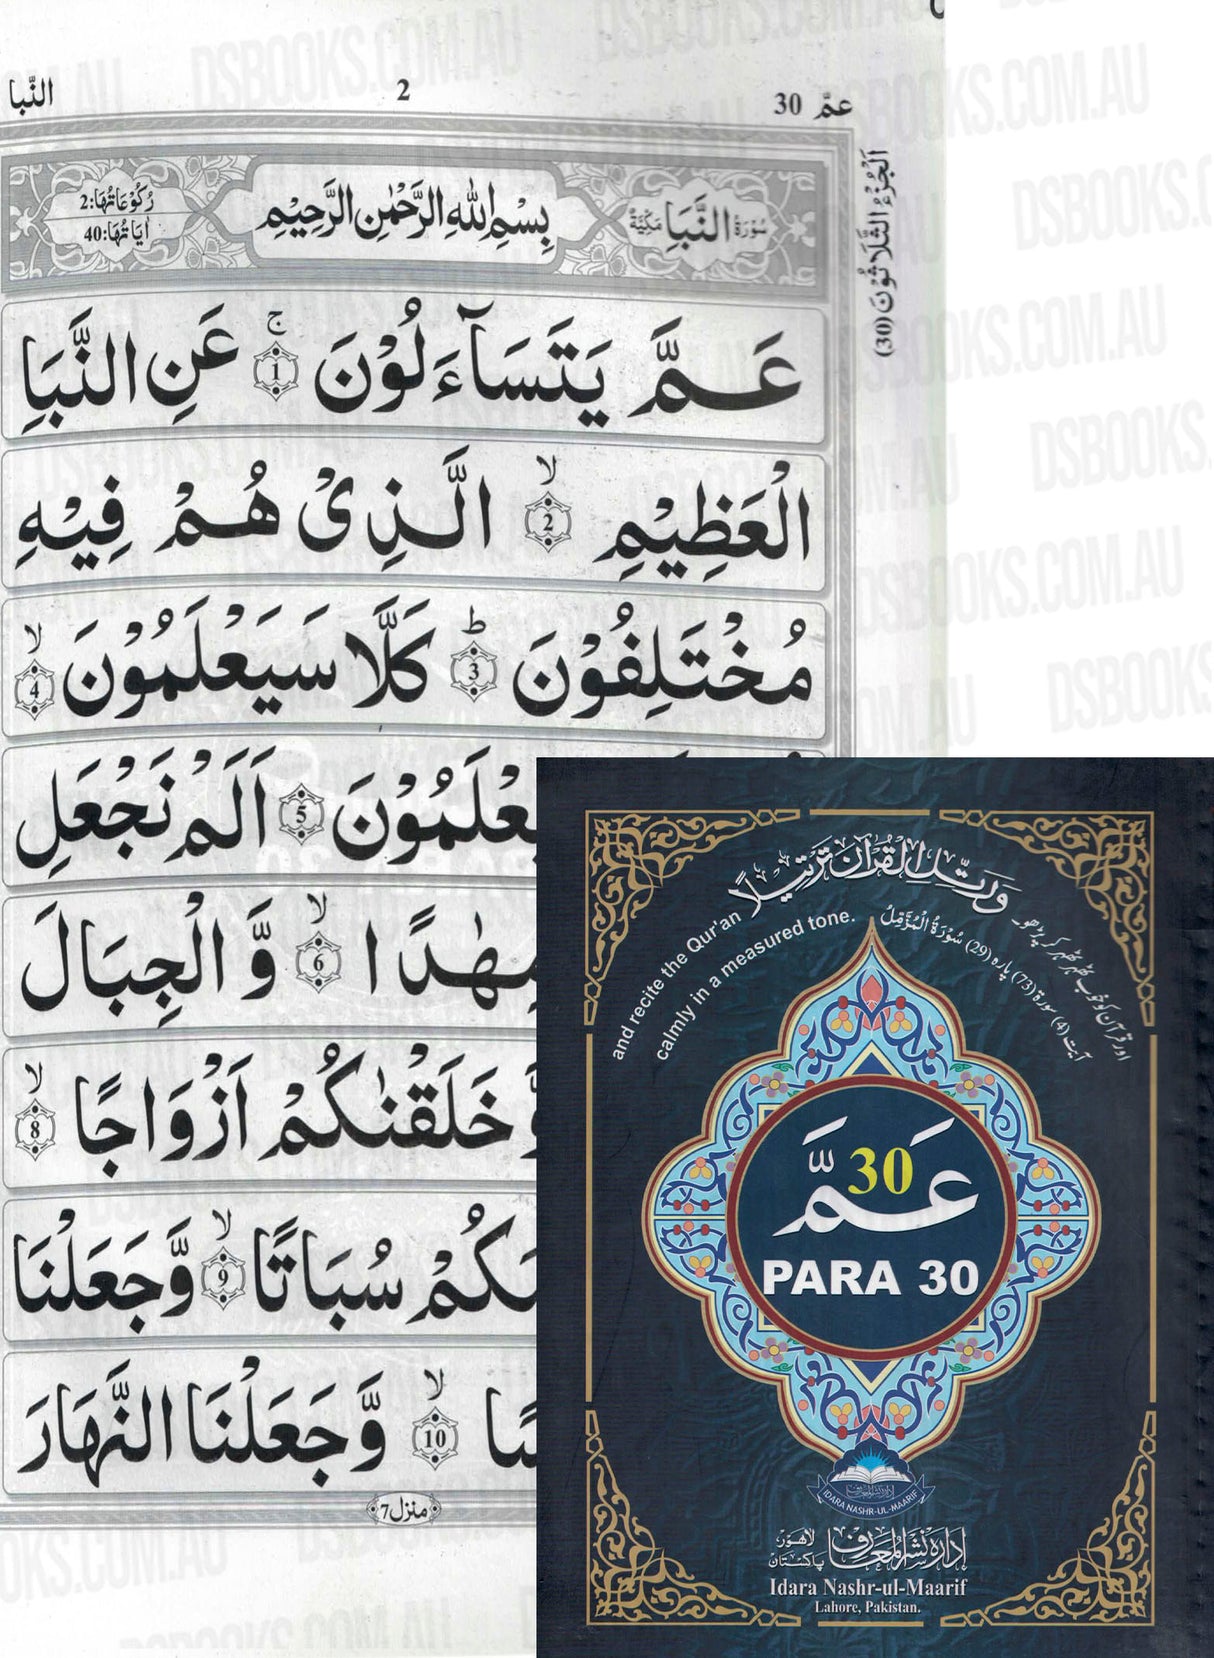 النَّبا
2
عمّ 30
اَلْجُزْءُ الثَّلَاثُوْنَ (30)
سُوْرَةُ النَّبَاِ مَكِّيَّةٌ
بِسْمِ اللهِ الرَّحْمٰنِ الرَّحِيْمِ
رُكُوْعَاتُهَا:2
اٰيَاتُهَا:40
عَـمَّ يَتَسَآءَلُوْنَ ۚ 1 عَنِ النَّبَاِ
الْعَظِيْمِ ۙ 2 الَّـذِىْ هُـمْ فِيْهِ
مُخْتَلِفُوْنَ ؕ 3 كَلَّا سَيَعْلَمُوْنَ ۙ 4
يَعْلَمُوْنَ 5 اَلَمْ نَجْعَلِ
مِهٰدًا ۙ 6 وَّ الْجِبَالَ
وَّخَلَقْنٰكُمْ اَزْوَاجًا ۙ 8
كُمْ سُبَاتًا ۙ 9 وَّجَعَلْنَا
سًا ۙ 10 وَّجَعَلْنَا النَّهَارَ
منزل 7
وَرَتِّلِ الْقُرْآنَ تَرْتِيلًا
and recite the Qur'an
calmly in a measured tone.
اور قرآن کو خوب ٹھہر ٹھہر کر پڑھو
آیت (4) سورۃ (73) پارہ (29) سُوْرَةُ الْمُزَّمِّلُ
عَـمَّ 30
PARA 30
IDARA NASHR-UL-MAARIF
ادارہ نشر المعارف لاہور پاکستان
Idara Nashr-ul-Maarif
Lahore, Pakistan.
DSBOOKS.COM.AU